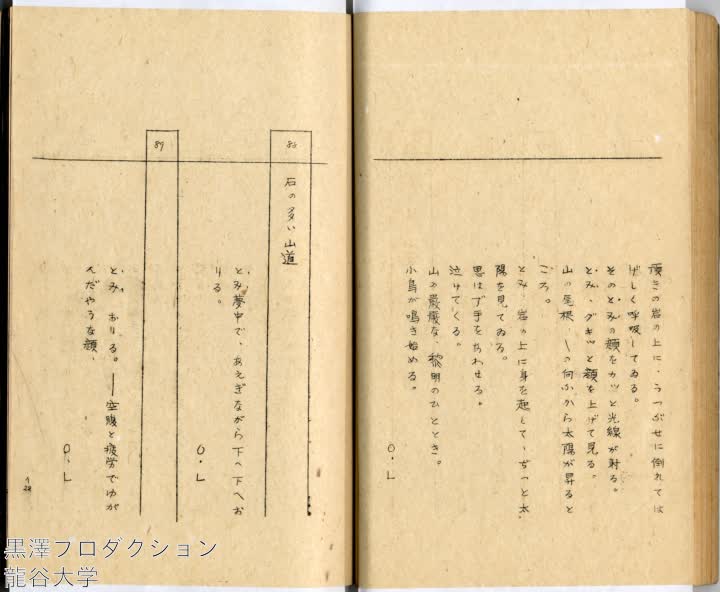 頂きの岩の上に、うつぶせに倒れては
げしく呼吸してゐる。
そのとみの顔をカッと光線が射る。
とみ、ダキッと顔を上げて見る。
山の尾根、――の向ふから太陽が昇ると
ころ。
とみ、岩の上に身を起して、ぢっと太
陽を見てゐる。
思はず手をあわせる。
泣けてくる。
山の厳瘦な、黎明のひととき。
小鳥が鳴き始める。
O・L
86
石の多い山道
とみ夢中で、あえぎながら下へ下へお
りる。
O・L
87
とみ、おりる。――空腹と疲労でゆが
んだやうな顔、
O・L
黒澤プロダクション
龍谷大学